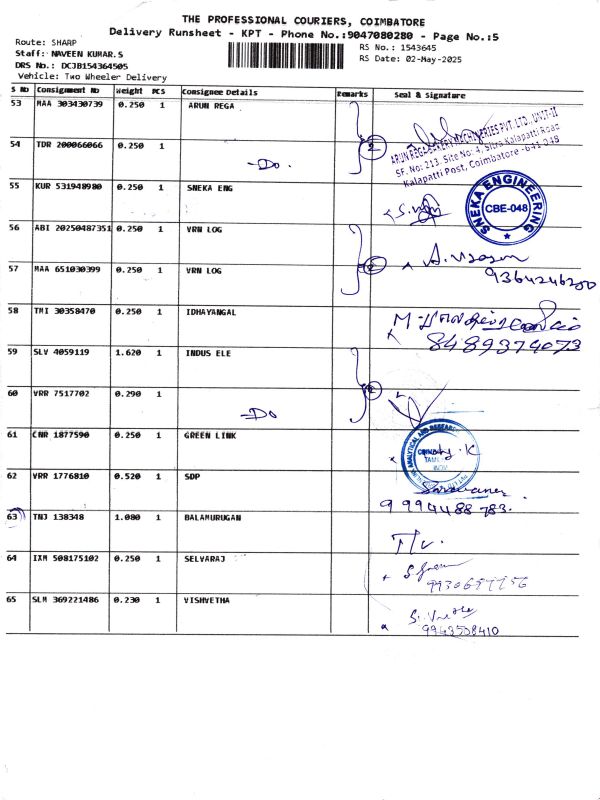 THE PROFESSIONAL COURIERS, COIMBATORE
Delivery Runsheet - KPT - Phone No.:9047080280 - Page No.:5
Route: SHARP
RS No.: 1543645
Staff: NAVEEN KUMAR.S
RS Date: 02-May-2025
DRS No.: DCJB154364505
Vehicle: Two Wheeler Delivery
S No Consignment No Weight PCS Consignee Details Remarks Seal & Signature
53 MAA 303430739 0.250 1 ARUN REGA
ARUN REGA MACHINERIES PVT. LTD., UNIT-II
SF. No: 213, Site No: 4, Sitra Kalapatti Road
Kalapatti Post, Coimbatore - 641 048
54 TDR 200066066 0.250 1 -Do. 2
55 KUR 531948980 0.250 1 SNEKA ENG
SNEKA ENGINEERING
CBE-048
56 ABI 20250487351 0.250 1 VRN LOG
57 MAA 651030399 0.250 1 VRN LOG 2
9364246200
58 TMI 30358470 0.250 1 IDHAYANGAL
8489374073
59 SLV 4059119 1.620 1 INDUS ELE
60 VRR 7517702 0.290 1 -Do 2
61 CNR 1877590 0.250 1 GREEN LINK
ANALYTICAL AND RESEARCH
62 VRR 1776810 0.520 1 SDP
Saravanan
9994488783.
63 TNJ 138348 1.080 1 BALAMURUGAN
64 IXM 508175102 0.250 1 SELVARAJ
65 SLM 369221486 0.230 1 VISHVETHA
9943508410